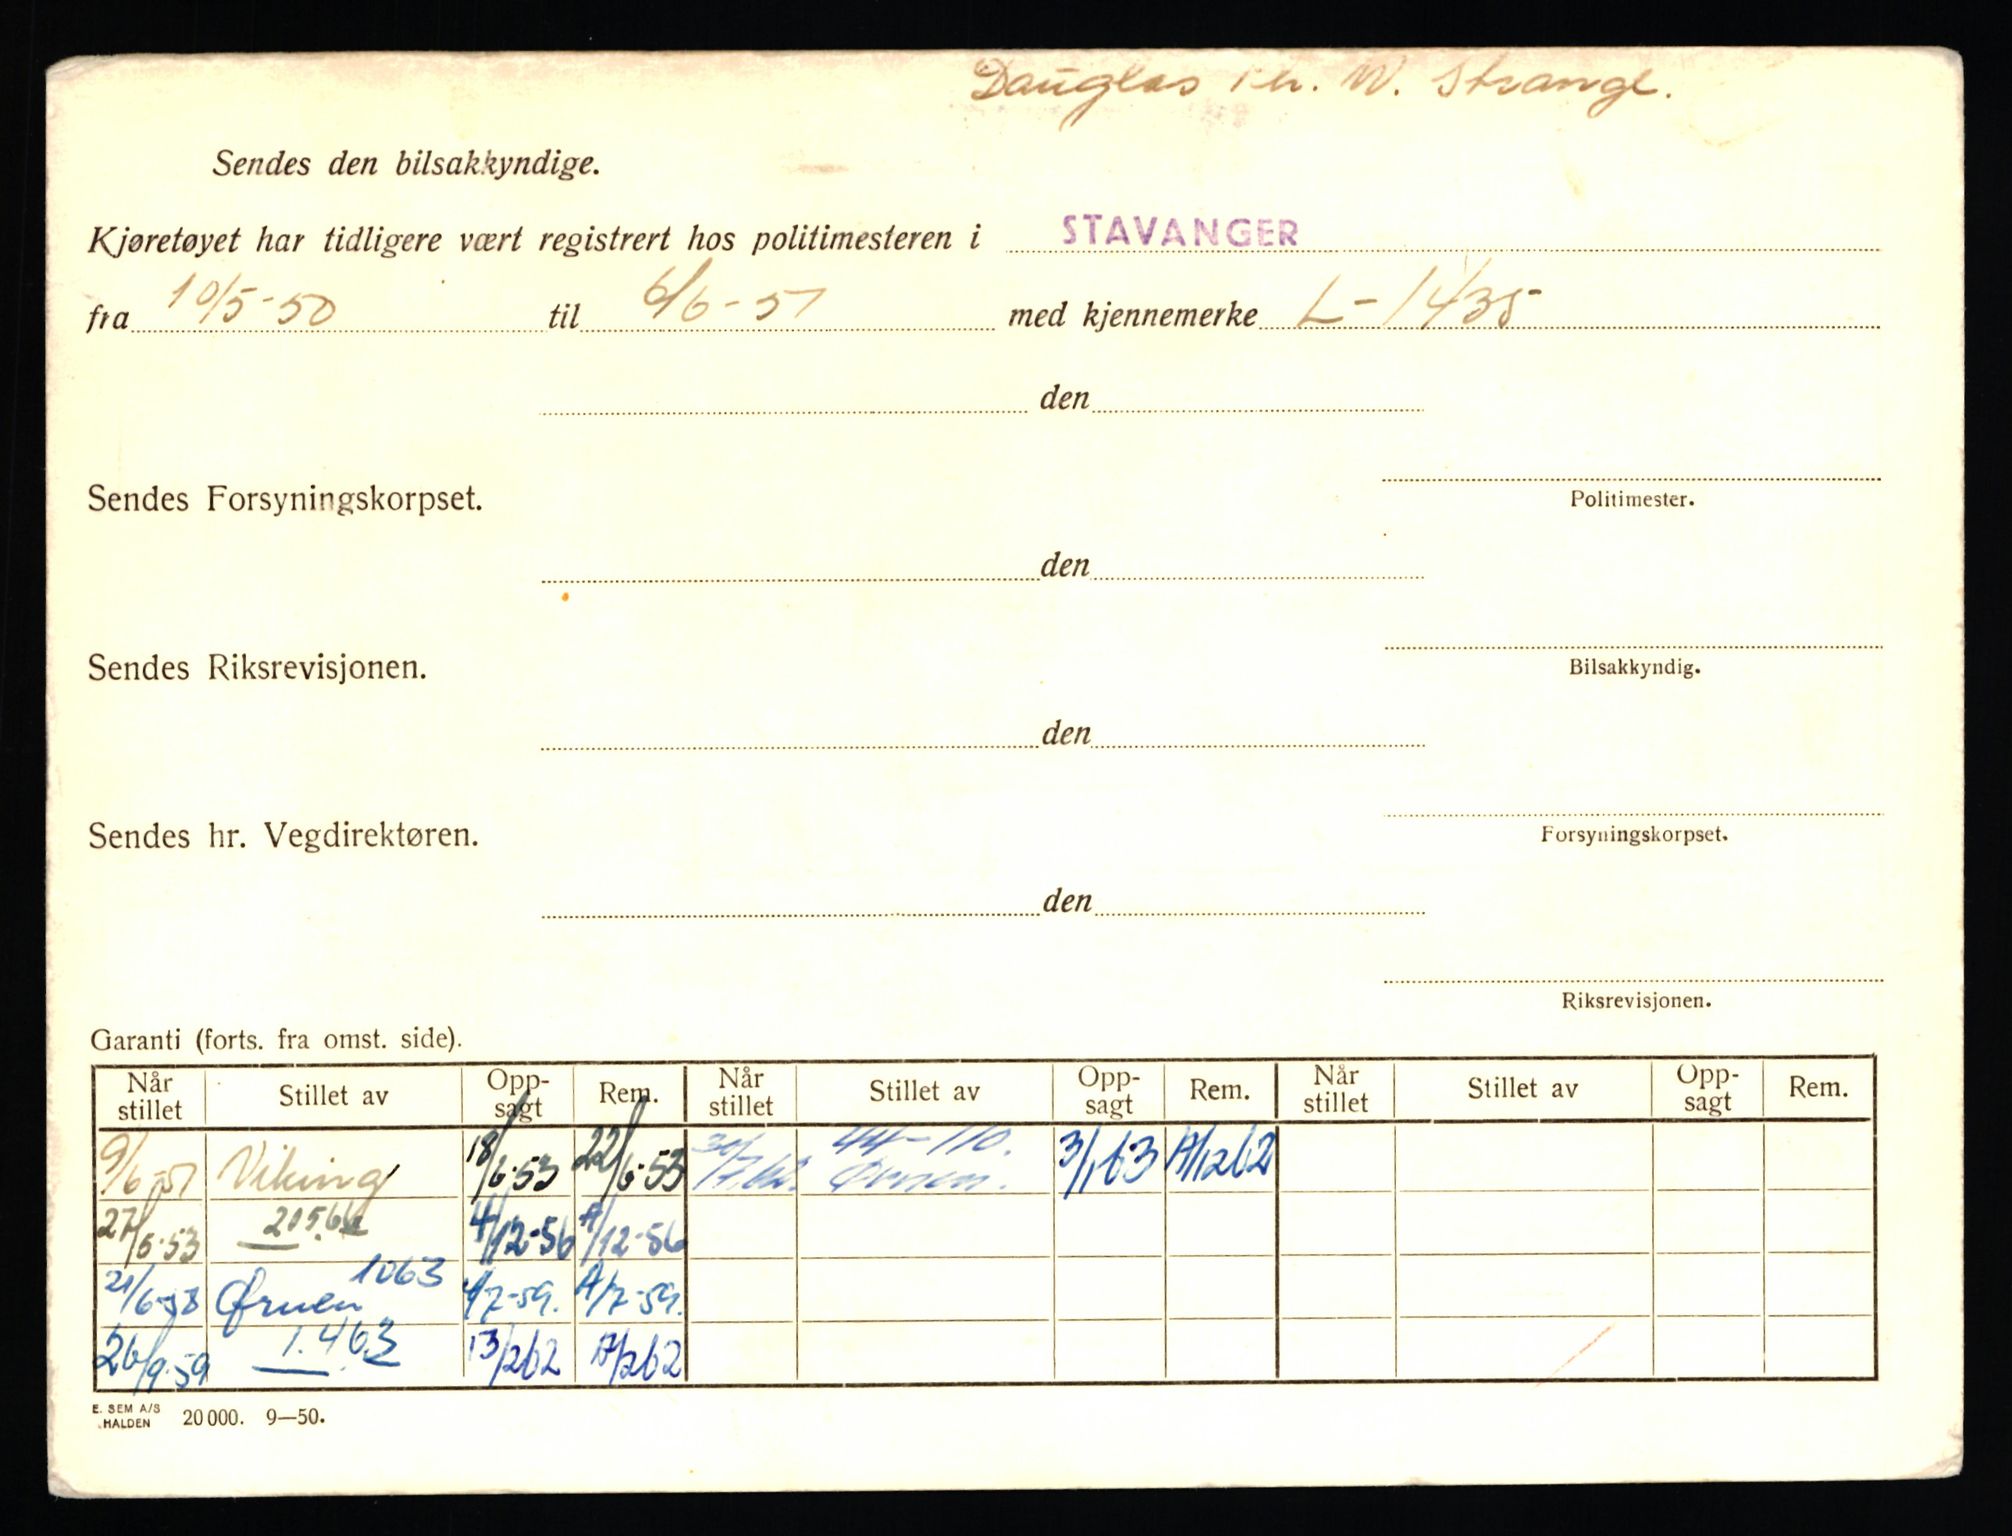 Dauglas Chr. W. Strange.
Sendes den bilsakkyndige.
Kjøretøyet har tidligere vært registrert hos politimesteren i STAVANGER
fra 10/5-50 til 6/6-51 med kjennemerke L-1435
den
Sendes Forsyningskorpset.
Politimester.
den
Sendes Riksrevisjonen.
Bilsakkyndig.
den
Sendes hr. Vegdirektøren.
Forsyningskorpset.
den
Riksrevisjonen.
Garanti (forts. fra omst. side).
Når stillet Stillet av Opp-sagt Rem. Når stillet Stillet av Opp-sagt Rem. Når stillet Stillet av Opp-sagt Rem.
9/6-51 Viking 18/6-53 22/6-53 44-110. Ørnen. 3/1 63 A/12 62
27/5-53 4/12-56 A/12-56
21/6-58 Ørnen 1063 4/7-59. A/7-59.
26/9-59 1.463 13/2 62 A/2 62
E. SEM A/S HALDEN 20000. 9—50.